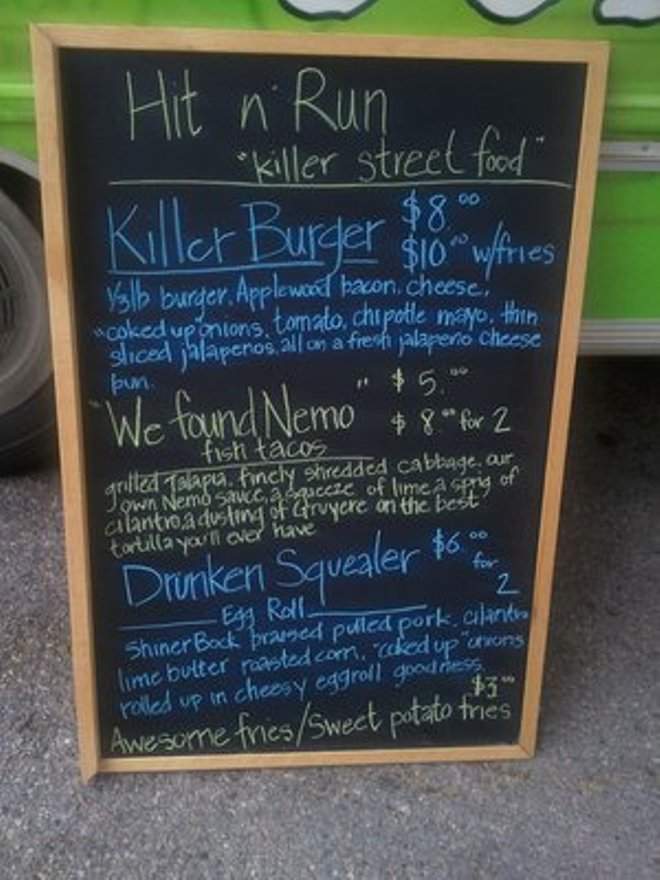 Hit n' Run
"killer street food"
Killer Burger $8.00
$10.00 w/fries
1/3lb burger, Applewood bacon, cheese,
"coked up onions, tomato, chipotle mayo, thin
sliced jalapenos, all on a fresh jalapeno cheese
bun.
"We found Nemo" $5.00
$8.00 for 2
fish tacos
grilled Talapia, finely shredded cabbage, our
own Nemo sauce, a squeeze of lime, a sprig of
cilantro, a dusting of Gruyere on the best
tortilla you'll ever have
Drunken Squealer $6.00
for
2
Egg Roll
Shiner Bock braised pulled pork, cilantro
lime butter roasted corn, "coked up" onions
rolled up in cheesy eggroll goodness.
$3.00
Awesome fries/Sweet potato fries